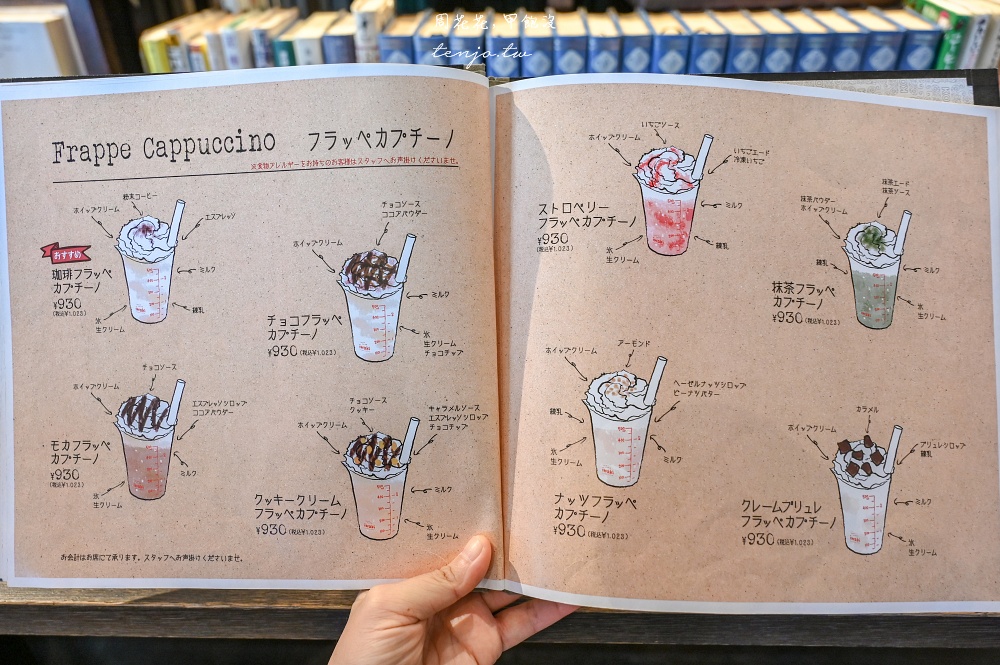 tenjo.tw
Frappe Cappuccino
フラッペカプチーノ
※食物アレルギーをお持ちのお客様はスタッフへお声掛けくださいませ。
粉末コーヒー
ホイップクリーム
エスプレッソ
おすすめ
珈琲フラッペ
カプチーノ
¥930
(税込¥1,023)
ミルク
練乳
氷
生クリーム
チョコソース
ココアパウダー
ホイップクリーム
チョコフラッペ
カプチーノ
¥930(税込¥1,023)
ミルク
氷
生クリーム
チョコチップ
チョコソース
ホイップクリーム
エスプレッソシロップ
ココアパウダー
モカフラッペ
カプチーノ
¥930
(税込¥1,023)
ミルク
氷
生クリーム
チョコソース
クッキー
ホイップクリーム
キャラメルソース
エスプレッソシロップ
チョコチップ
クッキークリーム
フラッペカプチーノ
¥930(税込¥1,023)
ミルク
氷
生クリーム
お会計はお席にて承ります。スタッフへお声掛けくださいませ。
いちごソース
ホイップクリーム
いちごエード
冷凍いちご
ストロベリー
フラッペカプチーノ
¥930
(税込¥1,023)
ミルク
練乳
氷
生クリーム
抹茶エード
抹茶ソース
抹茶パウダー
ホイップクリーム
練乳
抹茶フラッペ
カプチーノ
¥930(税込¥1,023)
ミルク
氷
生クリーム
アーモンド
ホイップクリーム
ヘーゼルナッツシロップ
ピーナツバター
練乳
氷
生クリーム
ミルク
ナッツフラッペ
カプチーノ
¥930(税込¥1,023)
カラメル
ホイップクリーム
ブリュレシロップ
練乳
クレームブリュレ
フラッペカプチーノ
¥930(税込¥1,023)
ミルク
氷
生クリーム